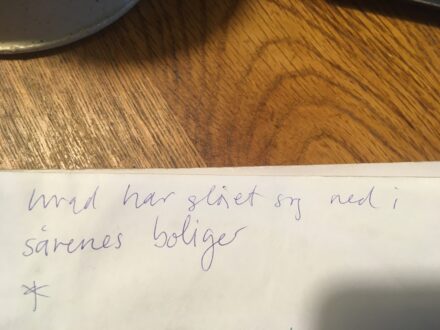 hvad har slået sig ned i
sårenes boliger
*